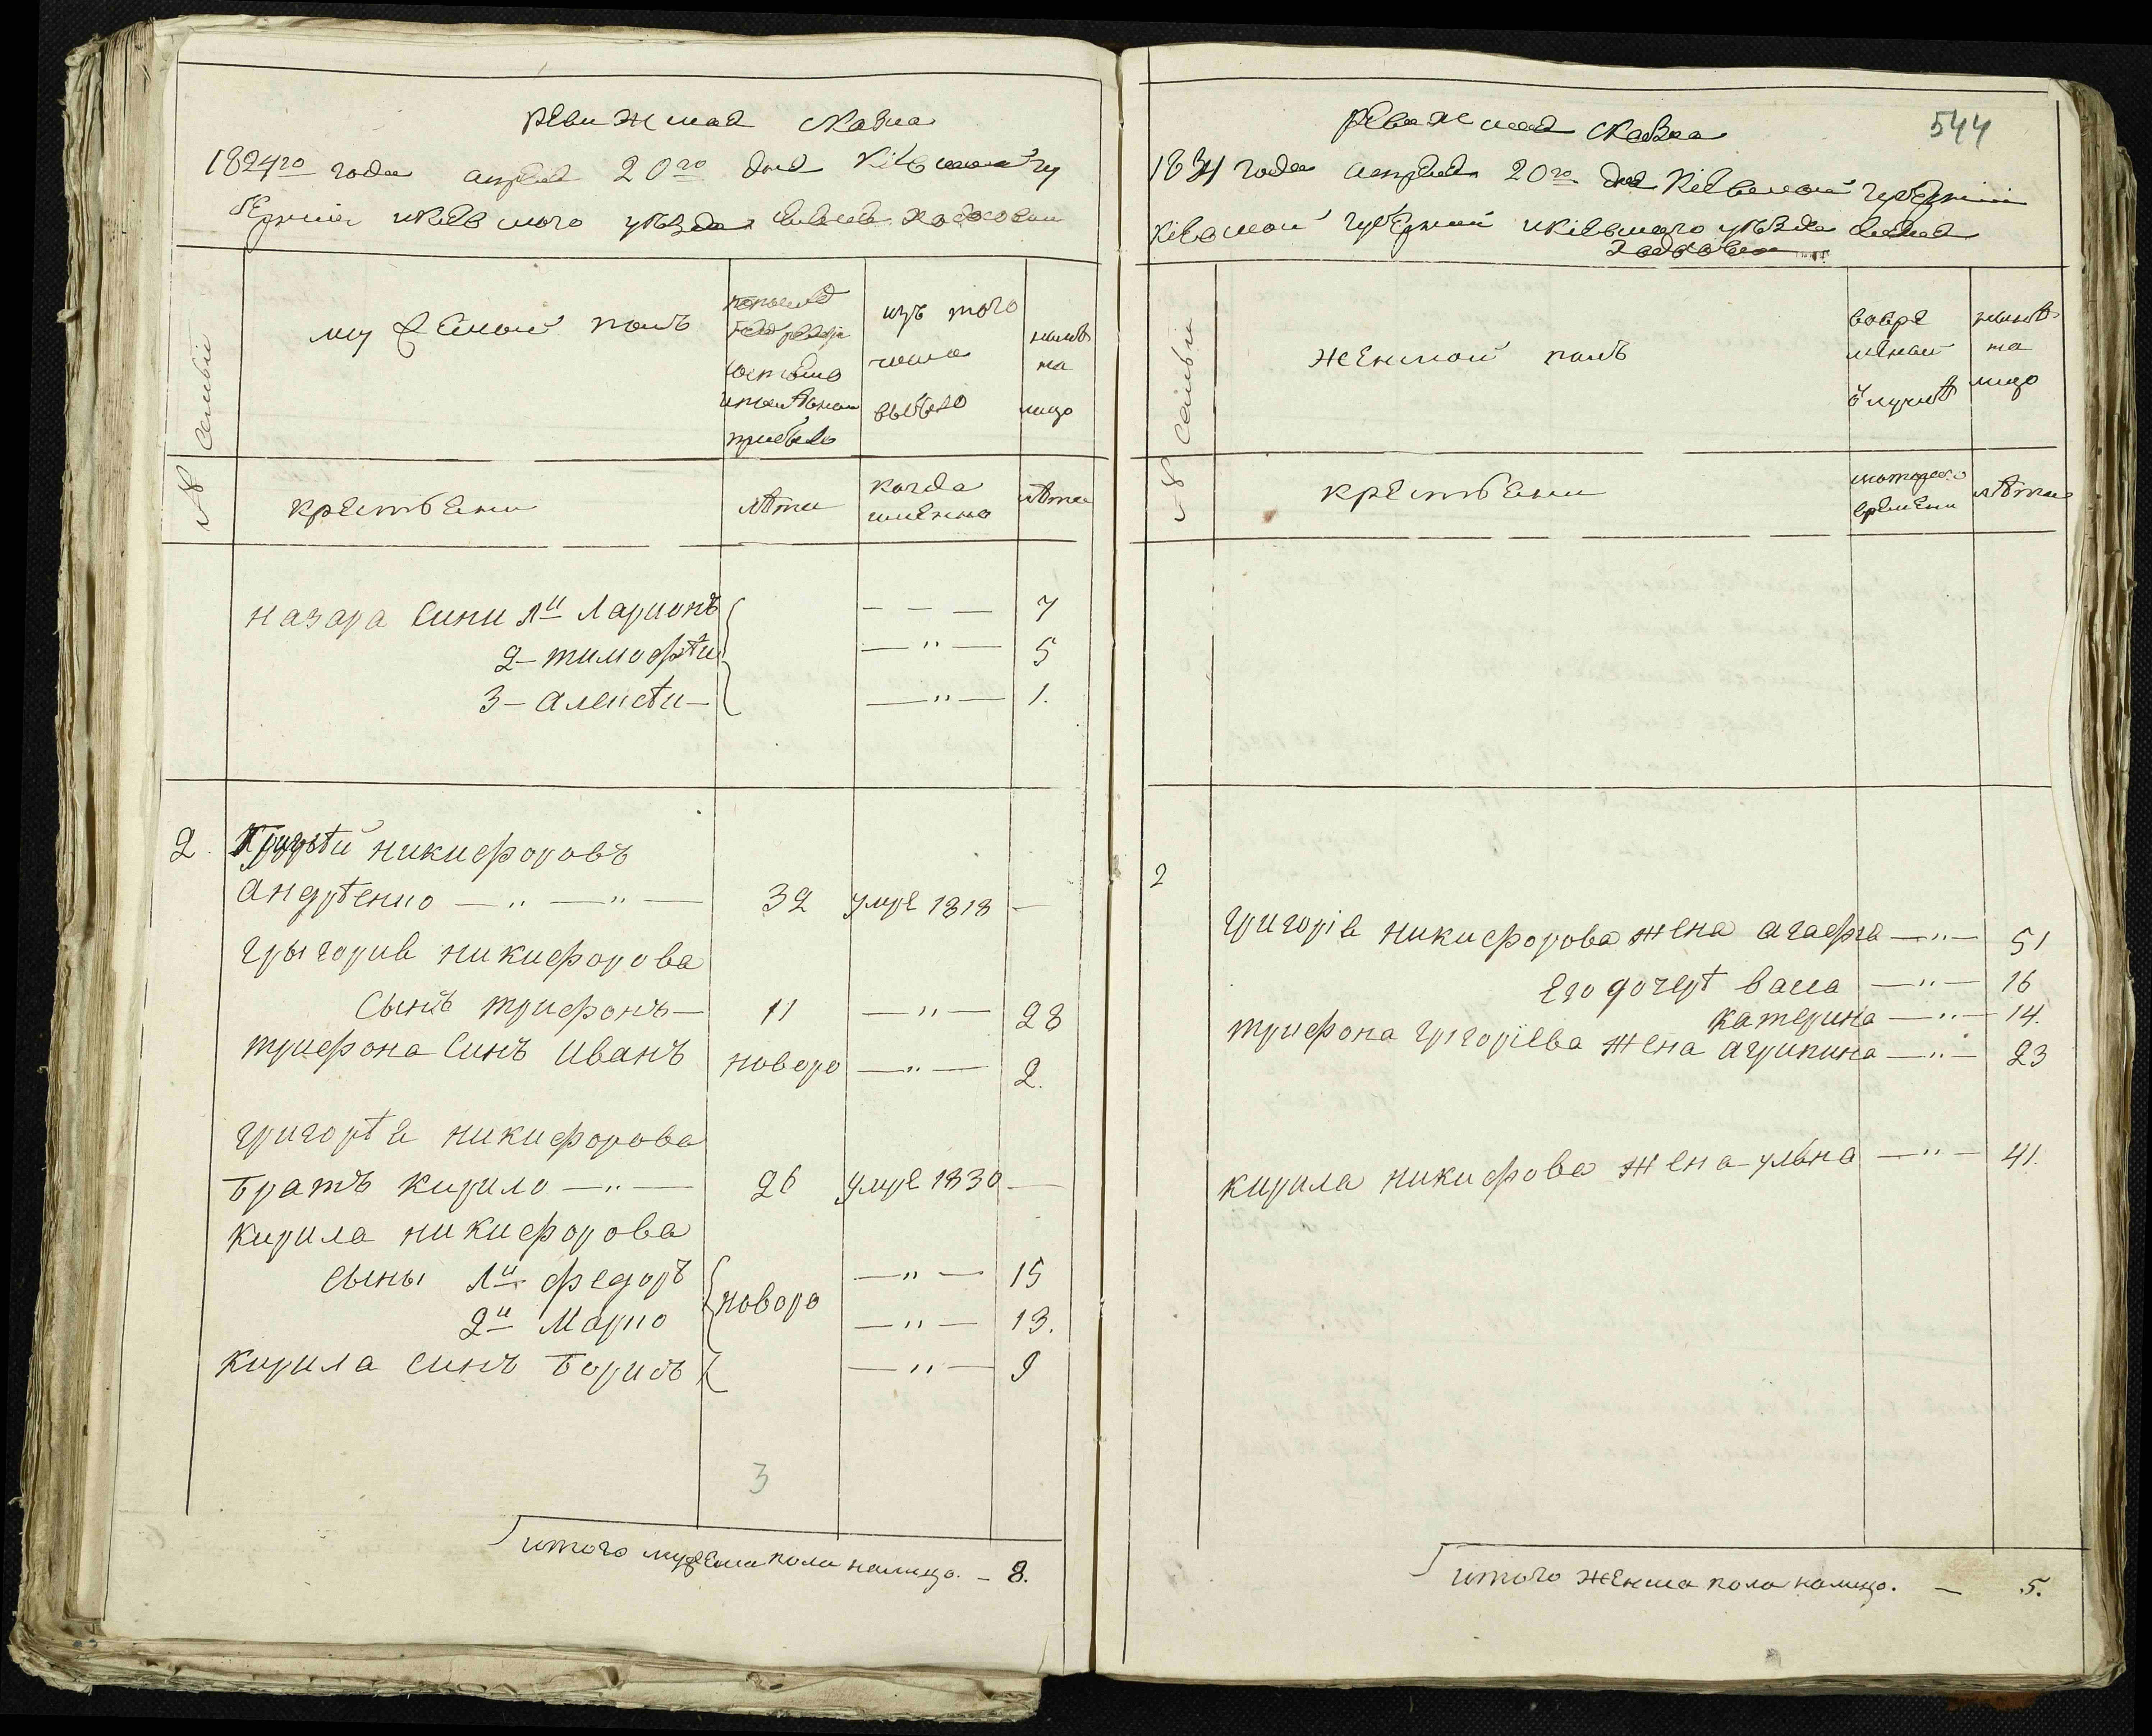 ревижская сказка
1824го года апреля 20го дня Кіевской гу
берніи и Киевского уѣзда
№ Семьи
мужескои полъ
состояло
прибыло
изъ того
числа
выбыло
нынѣ
на
лицо
крестьени
лѣта
когда
именно
лѣта
назара сини 1и Ларионъ — — — 7
2 — тимофѣи — " — 5
3 — алексѣи — — " — 1.
2. Григорѣй никифоровъ
андрѣенко — " — " — 32 умре 1818 —
григорив никифорова
сынъ трифонъ — 11 — " — 28
трифона синъ иванъ новоро — " — 2.
григорѣв никифорова
братъ кирило — " — 26 умре 1830 —
кирила никифорова
сыны 1и федоръ новоро — " — 15
2и Марко — " — 13.
кирила синъ борисъ — " — 9
3
итого мужеска пола налицо. — 8.
544
ревижская сказка
1834 года апреля 20го дня Кіевской губерніи
Кіевской губерніи и Кіевского уѣзда
№ Семьи
женской полъ
вовре
мѣной
ѿлучкѣ
нынѣ
на
лицо
крестьени
которого
времени
лѣта
2
григорів никифорова жена агафия — " — 51
его дочерѣ васса — " — 16
катерина — " — 14.
трифона григоріева жена агрипина — " — 23
кирила никифрова жена ульяна — " — 41.
итого женска пола налицо. — 5.